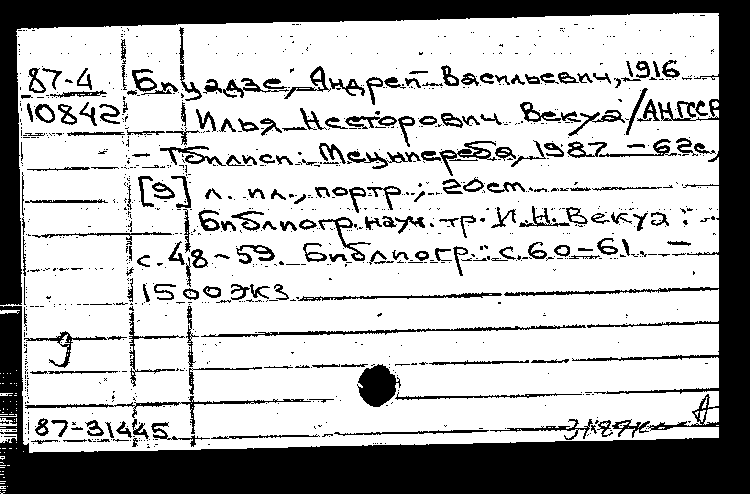 87-4 Бицадзе, Андрей Васильевич, 1916
10842 Илья Несторович Векуа / АНГССР
- Тбилиси: Мецниереба, 1987 - 62с.,
[9] л. ил., портр.; 20см
Библиогр. науч. тр. И.Н. Векуа:
с. 48-59. Библиогр.: с. 60-61. -
1500 экз
g
87-31445